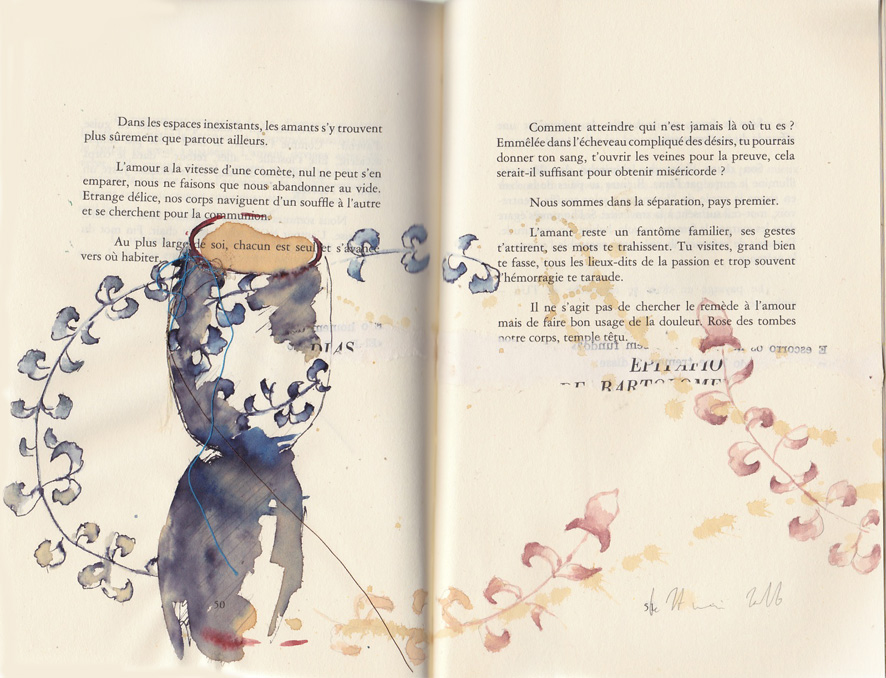 Dans les espaces inexistants, les amants s'y trouvent
plus sûrement que partout ailleurs.
L'amour a la vitesse d'une comète, nul ne peut s'en
emparer, nous ne faisons que nous abandonner au vide.
Etrange délice, nos corps naviguent d'un souffle à l'autre
et se cherchent pour la communion.
Au plus large de soi, chacun est seul et s'avance
vers où habiter.
DIAS
50
Comment atteindre qui n'est jamais là où tu es ?
Emmêlée dans l'écheveau compliqué des désirs, tu pourrais
donner ton sang, t'ouvrir les veines pour la preuve, cela
serait-il suffisant pour obtenir miséricorde ?
Nous sommes dans la séparation, pays premier.
L'amant reste un fantôme familier, ses gestes
t'attirent, ses mots te trahissent. Tu visites, grand bien
te fasse, tous les lieux-dits de la passion et trop souvent
l'hémorragie te taraude.
Il ne s'agit pas de chercher le remède à l'amour
mais de faire bon usage de la douleur. Rose des tombes
notre corps, temple têtu.
EPITAFIO
DE BARTOLOME